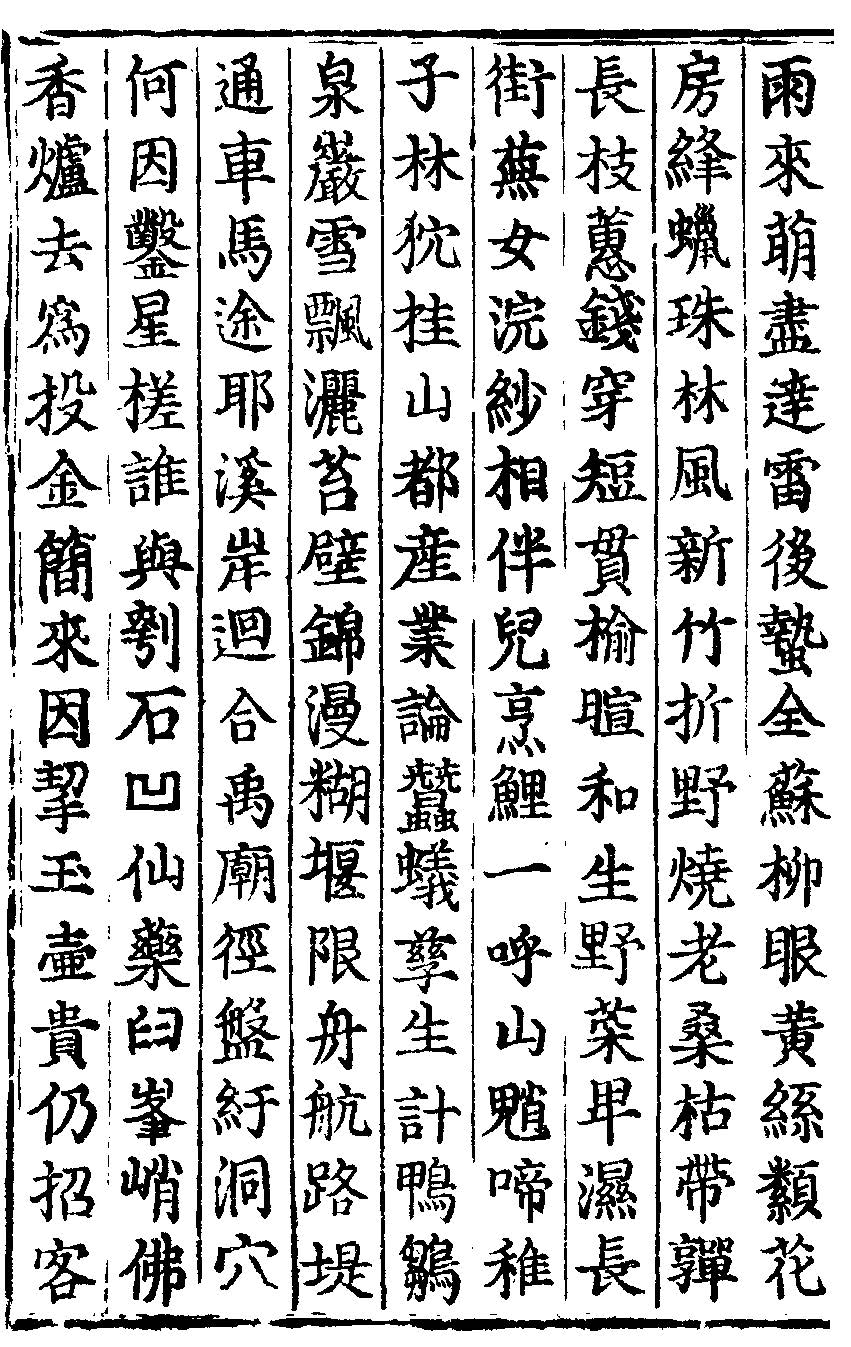 雨來萌盡達雷後蟄全蘇柳眼黃絲纇花
房絳蠟珠林風新竹折野燒老桑枯帶亸
長枝蕙錢穿短貫榆暄和生野菜卑濕長
街蕪女浣紗相伴兒烹鯉一呼山魈啼稚
子林狖挂山都產業論蠶蟻孳生計鴨雛
泉巖雪飄灑苔壁錦漫糊堰限舟航路堤
通車馬途耶溪岸迴合禹廟徑盤紆洞穴
何因鑿星槎誰與刳石凹仙藥臼峯峭佛
香爐去爲投金簡來因挈玉壺貴仍招客